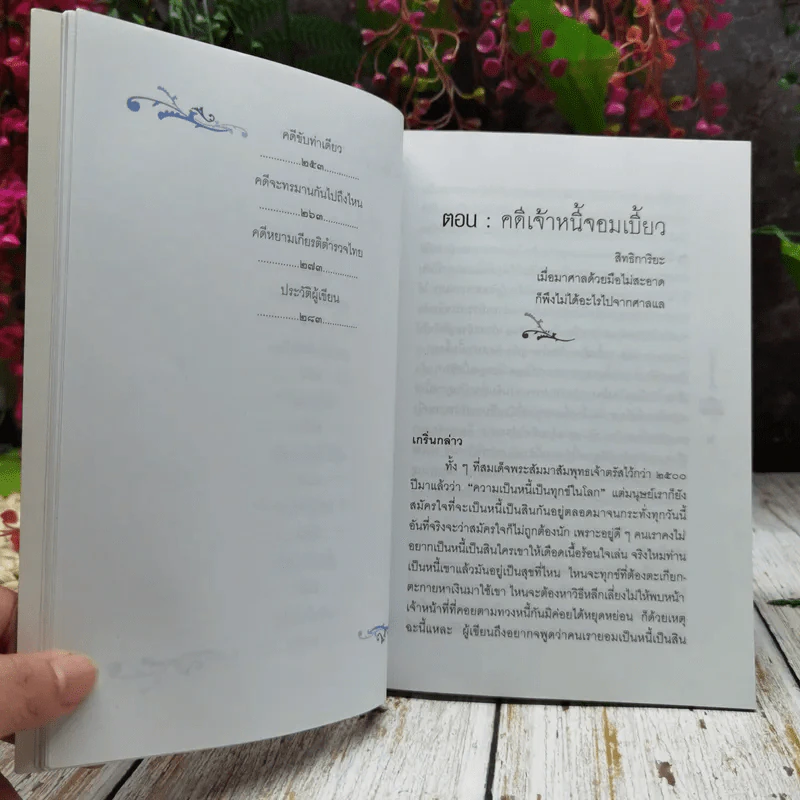 คดีขับท่าเดียว
..............๒๕๓..............
คดีจะทรมานกันไปถึงไหน
..............๒๖๓..............
คดีหยามเกียรติตำรวจไทย
..............๒๗๓..............
ประวัติผู้เขียน
..............๒๘๓..............
ตอน : คดีเจ้าหนี้จอมเบี้ยว
สิทธิการิยะ
เมื่อมาศาลด้วยมือไม่สะอาด
ก็พึงไม่ได้อะไรไปจากศาลแล
เกริ่นกล่าว
ทั้ง ๆ ที่สมเด็จพระสัมมาสัมพุทธเจ้าตรัสไว้กว่า ๒๕๐๐
ปีมาแล้วว่า "ความเป็นหนี้เป็นทุกข์ในโลก" แต่มนุษย์เราก็ยัง
สมัครใจที่จะเป็นหนี้เป็นสินกันอยู่ตลอดมาจนกระทั่งทุกวันนี้
อันที่จริงจะว่าสมัครใจก็ไม่ถูกต้องนัก เพราะอยู่ดี ๆ คนเราคงไม่
อยากเป็นหนี้เป็นสินใครเขาให้เดือดเนื้อร้อนใจเล่น จริงไหมท่าน
เป็นหนี้เขาแล้วมันอยู่เป็นสุขที่ไหน ไหนจะทุกข์ที่ต้องตะเกียก-
ตะกายหาเงินมาใช้เขา ไหนจะต้องหาวิธีหลีกเลี่ยงไม่ให้พบหน้า
เจ้าหน้าที่ที่คอยตามทวงหนี้กันมิค่อยได้หยุดหย่อน ก็ด้วยเหตุ
ฉะนี้แหละ ผู้เขียนถึงอยากจพูดว่าคนเรายอมเป็นหนี้เป็นสิน